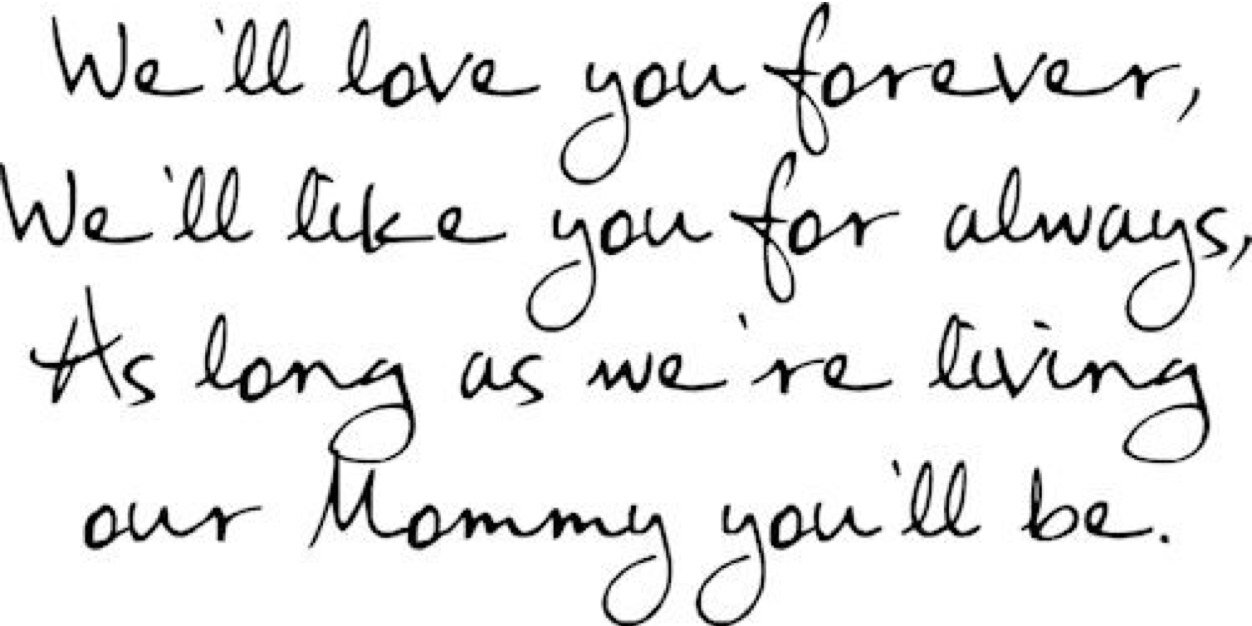 We'll love you forever,
We'll like you for always,
As long as we're living
our Mommy you'll be.